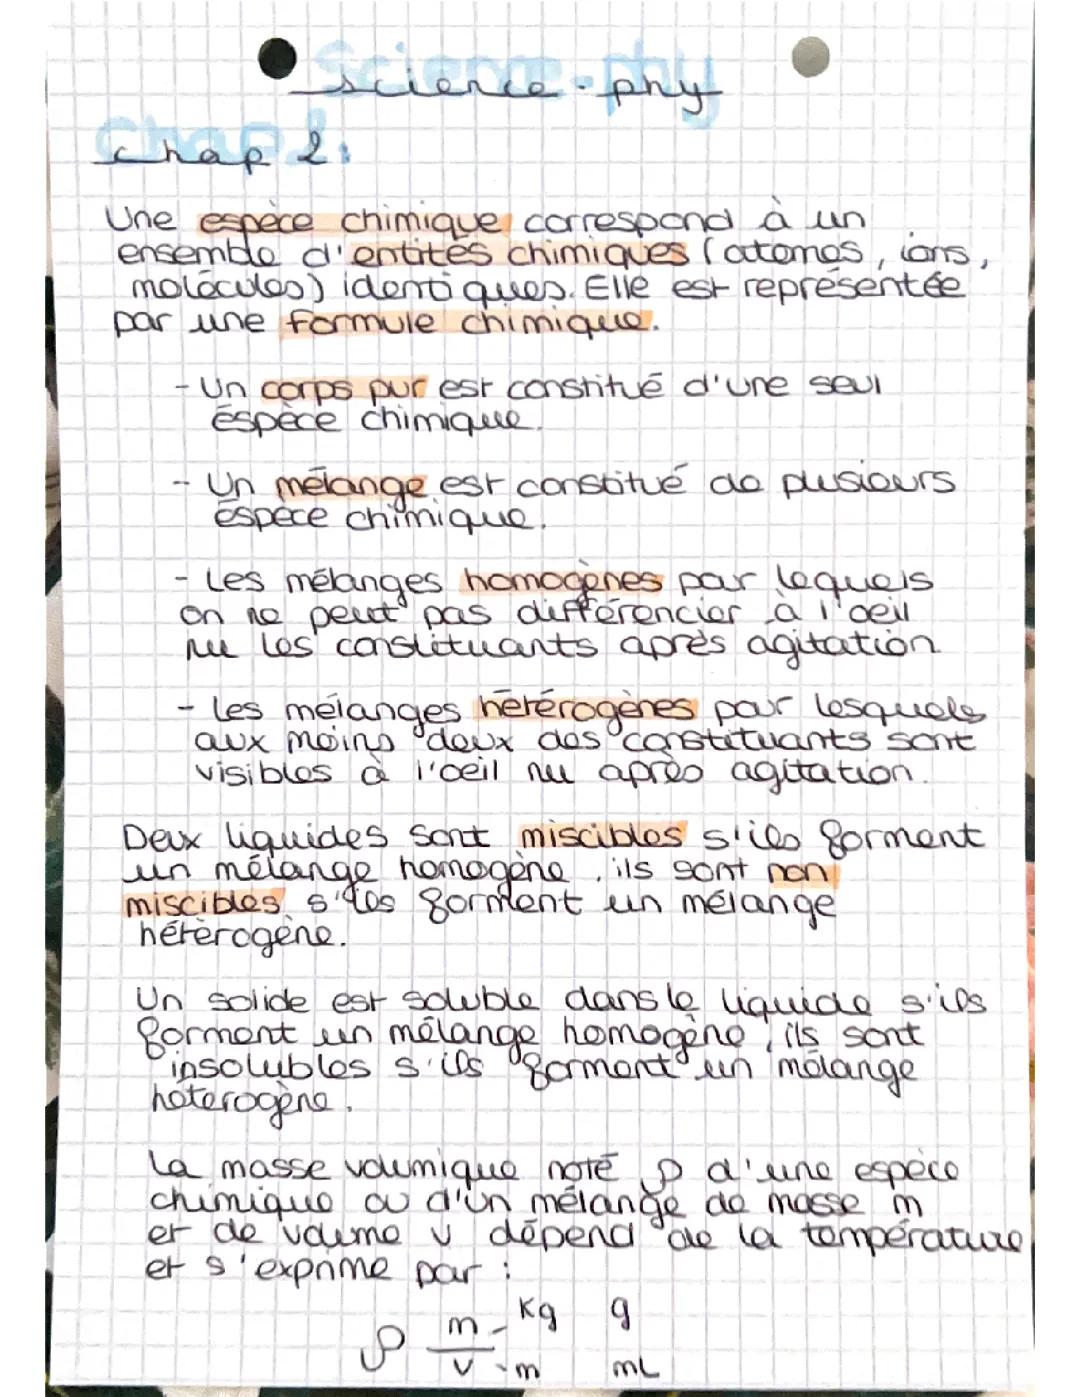 Science-phy
Chap 2:
Une espèce chimique correspond à un
ensemble d'entités chimiques (atomes, ions,
molécules) identiques. Elle est représentée
par une formule chimique.
- Un corps pur est constitué d'une seul
éspèce chimique.
- Un mélange est constitué de plusieurs
éspèce chimique.
- Les mélanges homogènes par lequels
on ne peut pas différencier à l'oeil
nu les constituants après agitation
- Les mélanges hétérogènes par lesquels
aux moins deux des constituants sont
visibles à l'oeil nu après agitation.
Deux liquides sont miscibles s'ils forment
un mélange homogène, ils sont non
miscibles s'ils forment un mélange
hétèrogène.
Un solide est soluble dans le liquide s'ils
forment un mélange homogène, ils sont
insolubles s'ils forment un mélange
heterogène.
La masse volumique noté ρ d'une espèce
chimique ou d'un mélange de masse m
et de volume v dépend de la température
et s'exprime par :
ρ m - kg g
v - m mL